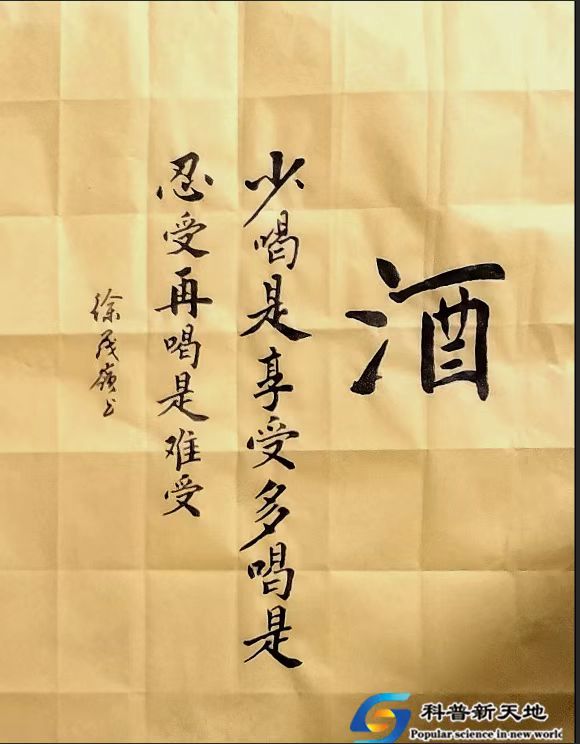 酒
少喝是享受多喝是
忍受再喝是难受
徐茂岭书
科普新天地
Popular science in new world